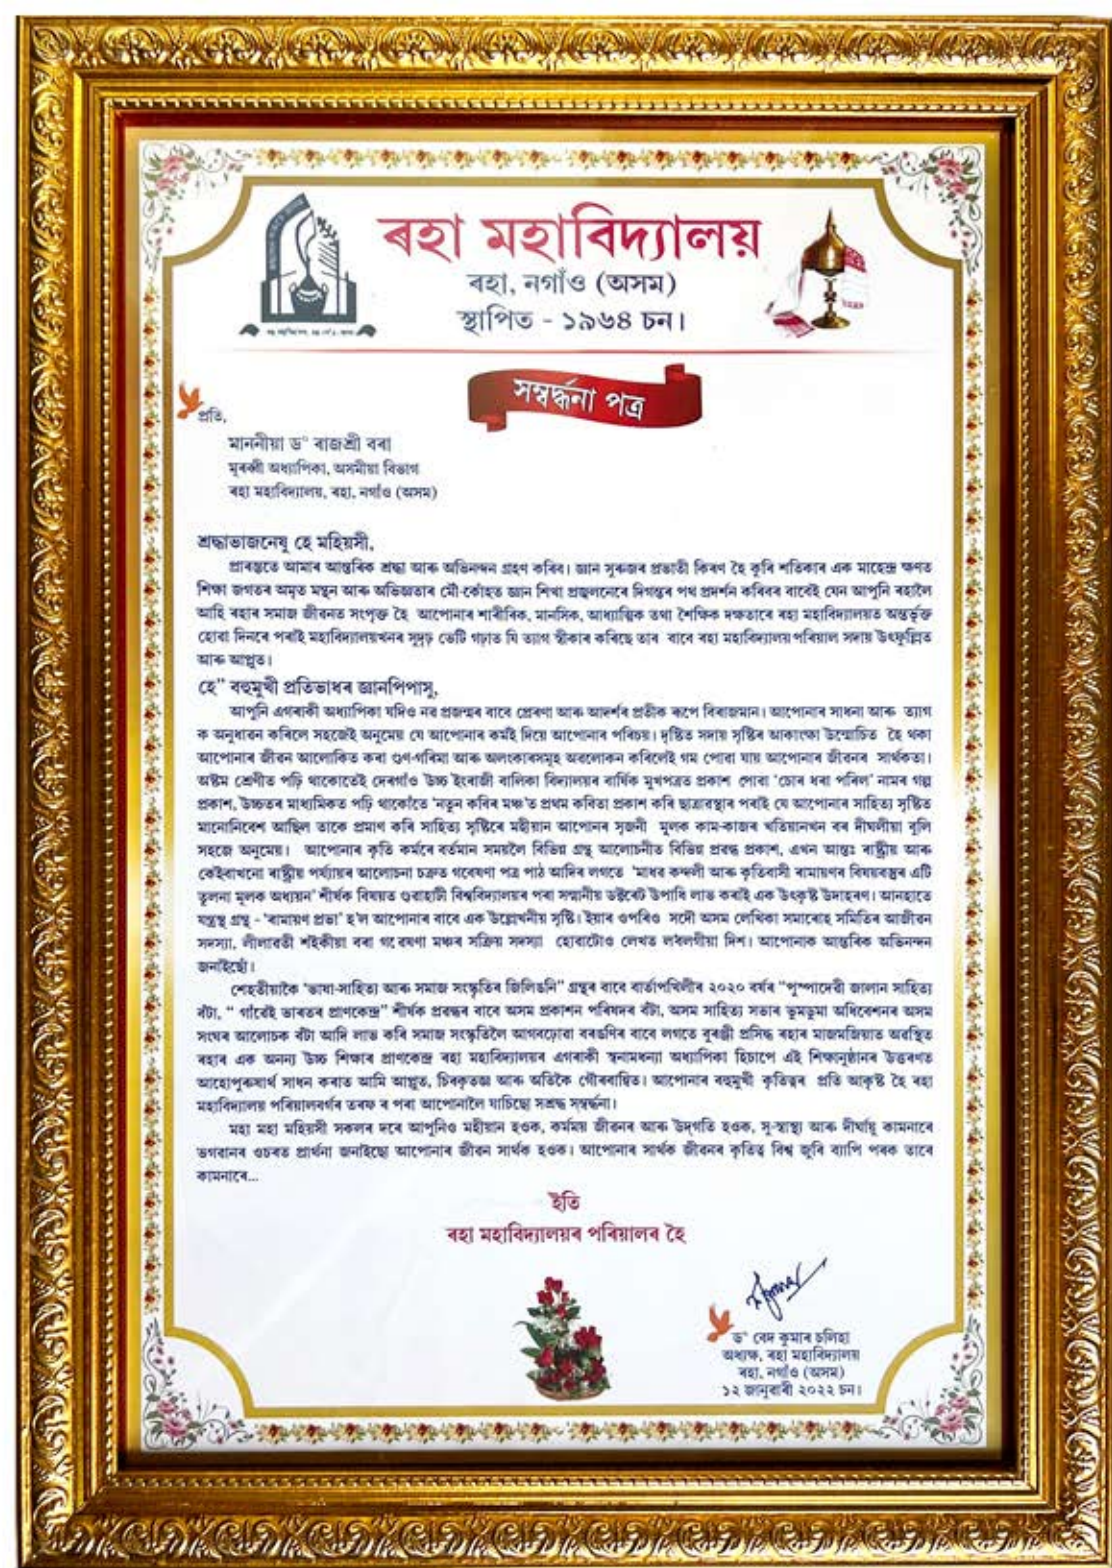 ৰহা মহাবিদ্যালয়
ৰহা, নগাঁও (অসম)
স্থাপিত - ১৯৬৪ চন।
সম্বৰ্দ্ধনা পত্ৰ
প্ৰতি,
মাননীয়া ড° ৰাজশ্ৰী বৰা
মূৰব্বী অধ্যাপিকা, অসমীয়া বিভাগ
ৰহা মহাবিদ্যালয়, ৰহা, নগাঁও (অসম)
শ্ৰদ্ধাভাজনেষু হে মহিয়সী,
প্ৰাৰম্ভতে আমাৰ আন্তৰিক শ্ৰদ্ধা আৰু অভিনন্দন গ্ৰহণ কৰিব। জ্ঞান সুৰুজৰ প্ৰভাতী কিৰণ হৈ কুৰি শতিকাৰ এক মাহেন্দ্ৰ ক্ষণত
শিক্ষা জগতৰ অমৃত মন্থন আৰু অভিজ্ঞতাৰ মৌ-কোঁহত জ্ঞান শিখা প্ৰজ্বলনেৰে দিগন্তৰ পথ প্ৰদৰ্শন কৰিবৰ বাবেই যেন আপুনি ৰহালৈ
আহি ৰহাৰ সমাজ জীৱনত সংপৃক্ত হৈ আপোনাৰ শাৰীৰিক, মানসিক, আধ্যাত্মিক তথা শৈক্ষিক দক্ষতাৰে ৰহা মহাবিদ্যালয়ত অন্তৰ্ভূক্ত
হোৱা দিনৰে পৰাই মহাবিদ্যালয়খনৰ সুদৃঢ় ভেটি গঢ়াত যি ত্যাগ স্বীকাৰ কৰিছে তাৰ বাবে ৰহা মহাবিদ্যালয় পৰিয়াল সদায় উৎফুল্লিত
আৰু আপ্লুত।
হে" বহুমুখী প্ৰতিভাধৰ জ্ঞানপিপাসু,
আপুনি এগৰাকী অধ্যাপিকা যদিও নৱ প্ৰজন্মৰ বাবে প্ৰেৰণা আৰু আদৰ্শৰ প্ৰতীক ৰূপে বিৰাজমান। আপোনাৰ সাধনা আৰু ত্যাগ
ক অনুধাৱন কৰিলে সহজেই অনুমেয় যে আপোনাৰ কৰ্মই দিয়ে আপোনাৰ পৰিচয়। দৃষ্টিত সদায় সৃষ্টিৰ আকাংক্ষা উন্মোচিত হৈ থকা
আপোনাৰ জীৱন আলোকিত কৰা গুণ-গৰিমা আৰু অলংকাৰসমূহ অৱলোকন কৰিলেই গম পোৱা যায় আপোনাৰ জীৱনৰ সাৰ্থকতা।
অষ্টম শ্ৰেণীত পঢ়ি থাকোতেই দেৰগাঁও উচ্চ ইংৰাজী বালিকা বিদ্যালয়ৰ বাৰ্ষিক মুখপত্ৰত প্ৰকাশ পোৱা 'চোৰ ধৰা পৰিল' নামৰ গল্প
প্ৰকাশ, উচ্চতৰ মাধ্যমিকত পঢ়ি থাকোঁতে 'নতুন কবিৰ মঞ্চ'ত প্ৰথম কবিতা প্ৰকাশ কৰি ছাত্ৰাৱস্থাৰ পৰাই যে আপোনাৰ সাহিত্য সৃষ্টিত
মানোনিবেশ আছিল তাকে প্ৰমাণ কৰি সাহিত্য সৃষ্টিৰে মহীয়ান আপোনৰ সৃজনী মূলক কাম-কাজৰ খতিয়ানখন বৰ দীঘলীয়া বুলি
সহজে অনুমেয়। আপোনাৰ কৃতি কৰ্মৰে বৰ্তমান সময়লৈ বিভিন্ন গ্ৰন্থ আলোচনীত বিভিন্ন প্ৰবন্ধ প্ৰকাশ, এখন আন্তঃ ৰাষ্ট্ৰীয় আৰু
কেইবাখনো ৰাষ্ট্ৰীয় পৰ্য্যায়ৰ আলোচনা চক্ৰত গৱেষণা পত্ৰ পাঠ আদিৰ লগতে 'মাধৱ কন্দলী আৰু কৃতিবাসী ৰামায়ণৰ বিষয়বস্তুৰ এটি
তুলনা মূলক অধ্যয়ন' শীৰ্ষক বিষয়ত গুৱাহাটী বিশ্ববিদ্যালয়ৰ পৰা সন্মানীয় ডক্টৰেট উপাধি লাভ কৰাই এক উৎকৃষ্ট উদাহৰণ। আনহাতে
যন্ত্ৰস্থ গ্ৰন্থ - 'ৰামায়ণ প্ৰভা' হ'ল আপোনাৰ বাবে এক উল্লেখনীয় সৃষ্টি। ইয়াৰ ওপৰিও সদৌ অসম লেখিকা সমাৰোহ সমিতিৰ আজীৱন
সদস্যা, লীলাৱতী শইকীয়া বৰা গৱেষণা মঞ্চৰ সক্ৰিয় সদস্যা হোৱাটোও লেখত ল'বলগীয়া দিশ। আপোনাক আন্তৰিক অভিনন্দন
জনাইছোঁ।
শেহতীয়াকৈ 'ভাষা-সাহিত্য আৰু সমাজ সংস্কৃতিৰ জিলিঙনি" গ্ৰন্থৰ বাবে বাৰ্তাপখিলীৰ ২০২০ বৰ্ষৰ "পুষ্পাদেৱী জালান সাহিত্য
বঁটা, " গাঁৱেই ভাৰতৰ প্ৰাণকেন্দ্ৰ" শীৰ্ষক প্ৰবন্ধৰ বাবে অসম প্ৰকাশন পৰিষদৰ বঁটা, অসম সাহিত্য সভাৰ ডুমডুমা অধিবেশনৰ অসম
সংঘৰ আলোচক বঁটা আদি লাভ কৰি সমাজ সংস্কৃতিলৈ আগবঢ়োৱা বৰঙণিৰ বাবে লগতে বুৰঞ্জী প্ৰসিদ্ধ ৰহাৰ মাজমজিয়াত অৱস্থিত
ৰহাৰ এক অনন্য উচ্চ শিক্ষাৰ প্ৰাণকেন্দ্ৰ ৰহা মহাবিদ্যালয়ৰ এগৰাকী স্বনামধন্যা অধ্যাপিকা হিচাপে এই শিক্ষানুষ্ঠানৰ উত্তৰণত
আহোপুৰুষাৰ্থ সাধন কৰাত আমি আপ্লুত, চিৰকৃতজ্ঞ আৰু অতিকৈ গৌৰৱান্বিত। আপোনাৰ বহুমুখী কৃতিত্বৰ প্ৰতি আকৃষ্ট হৈ ৰহা
মহাবিদ্যালয় পৰিয়ালবৰ্গৰ তৰফ ৰ পৰা আপোনালৈ যাচিছো সশ্ৰদ্ধ সম্বৰ্দ্ধনা।
মহা মহা মহিয়সী সকলৰ দৰে আপুনিও মহীয়ান হওক, কৰ্মময় জীৱনৰ আৰু উদ্‌গতি হওক, সু-স্বাস্থ্য আৰু দীৰ্ঘায়ু কামনাৰে
ভগৱানৰ ওচৰত প্ৰাৰ্থনা জনাইছো আপোনাৰ জীৱন সাৰ্থক হওক। আপোনাৰ সাৰ্থক জীৱনৰ কৃতিত্ব বিশ্ব জুৰি ব্যাপি পৰক তাৰে
কামনাৰে...
ইতি
ৰহা মহাবিদ্যালয়ৰ পৰিয়ালৰ হৈ
ড° বেদ কুমাৰ চলিহা
অধ্যক্ষ, ৰহা মহাবিদ্যালয়
ৰহা, নগাঁও (অসম)
১২ জানুৱাৰী ২০২২ চন।